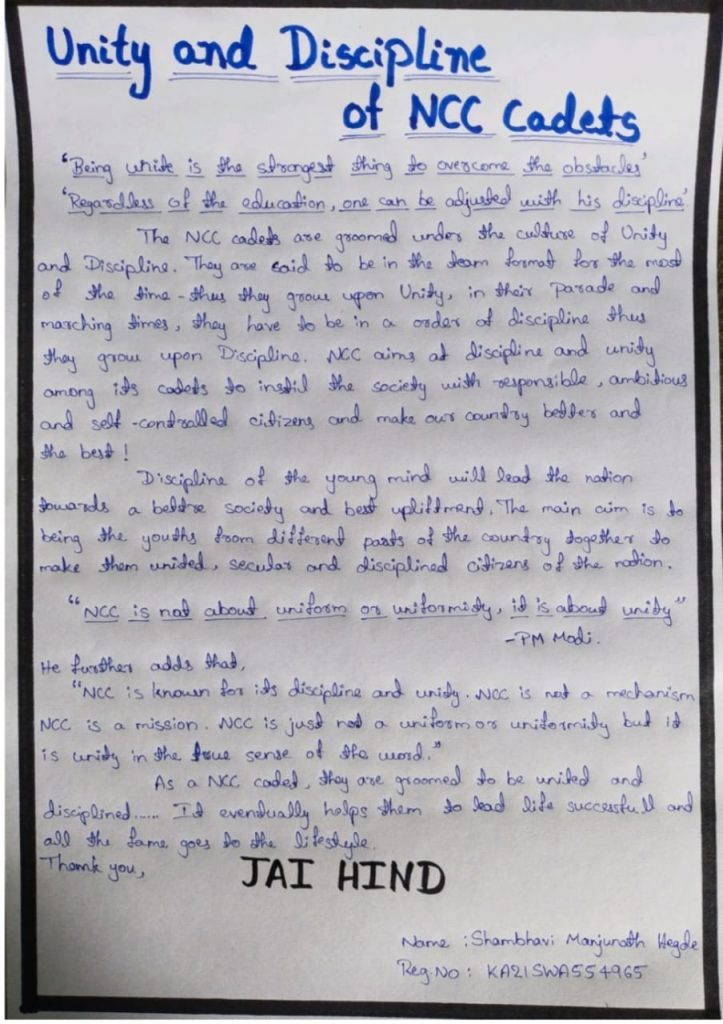 Unity and Discipline
of NCC Cadets
'Being unite is the strongest thing to overcome the obstacles'
'Regardless of the education, one can be adjusted with his discipline'
The NCC cadets are groomed under the culture of Unity
and Discipline. They are said to be in the team format for the most
of the time - thus they grow upon Unity, in their Parade and
marching times, they have to be in a order of discipline thus
they grow upon Discipline. NCC aims at discipline and unity
among its cadets to instil the society with responsible, ambitious
and self-controlled citizens and make our country better and
the best!
Discipline of the young mind will lead the nation
towards a bettre society and best upliftment. The main aim is to
being the youths from different parts of the country together to
make them united, secular and disciplined citizens of the nation.
"NCC is not about uniform or uniformity, it is about unity"
-PM Modi.
He further adds that,
"NCC is known for its discipline and unity. NCC is not a mechanism
NCC is a mission. NCC is just not a uniform or uniformity but it
is unity in the true sense of the word."
As a NCC cadet, they are groomed to be united and
disciplined...... It eventually helps them to lead life successfull and
all the fame goes to the lifestyle.
Thank you,
JAI HIND
Name : Shambhavi Manjunath Hegde
Reg.No : KA21SWA554965